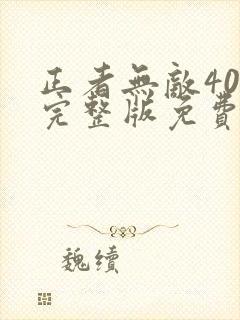 正者無敵40
完整版免費
魏續